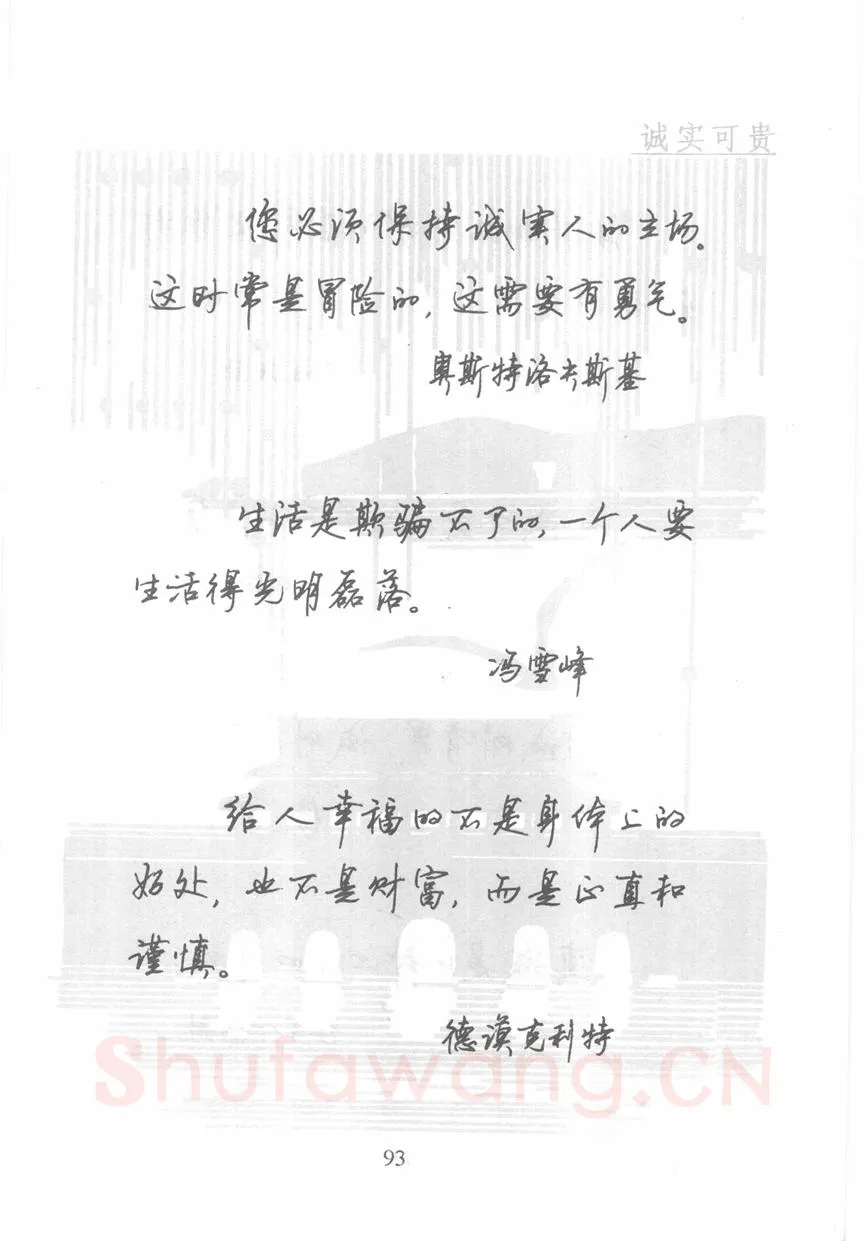 诚实可贵
您必须保持诚实人的立场。
这时常是冒险的，这需要有勇气。
奥斯特洛夫斯基
生活是欺骗不了的，一个人要
生活得光明磊落。
冯雪峰
给人幸福的不是身体上的
好处，也不是财富，而是正直和
谨慎。
德谟克利特
Shufawang.CN
93